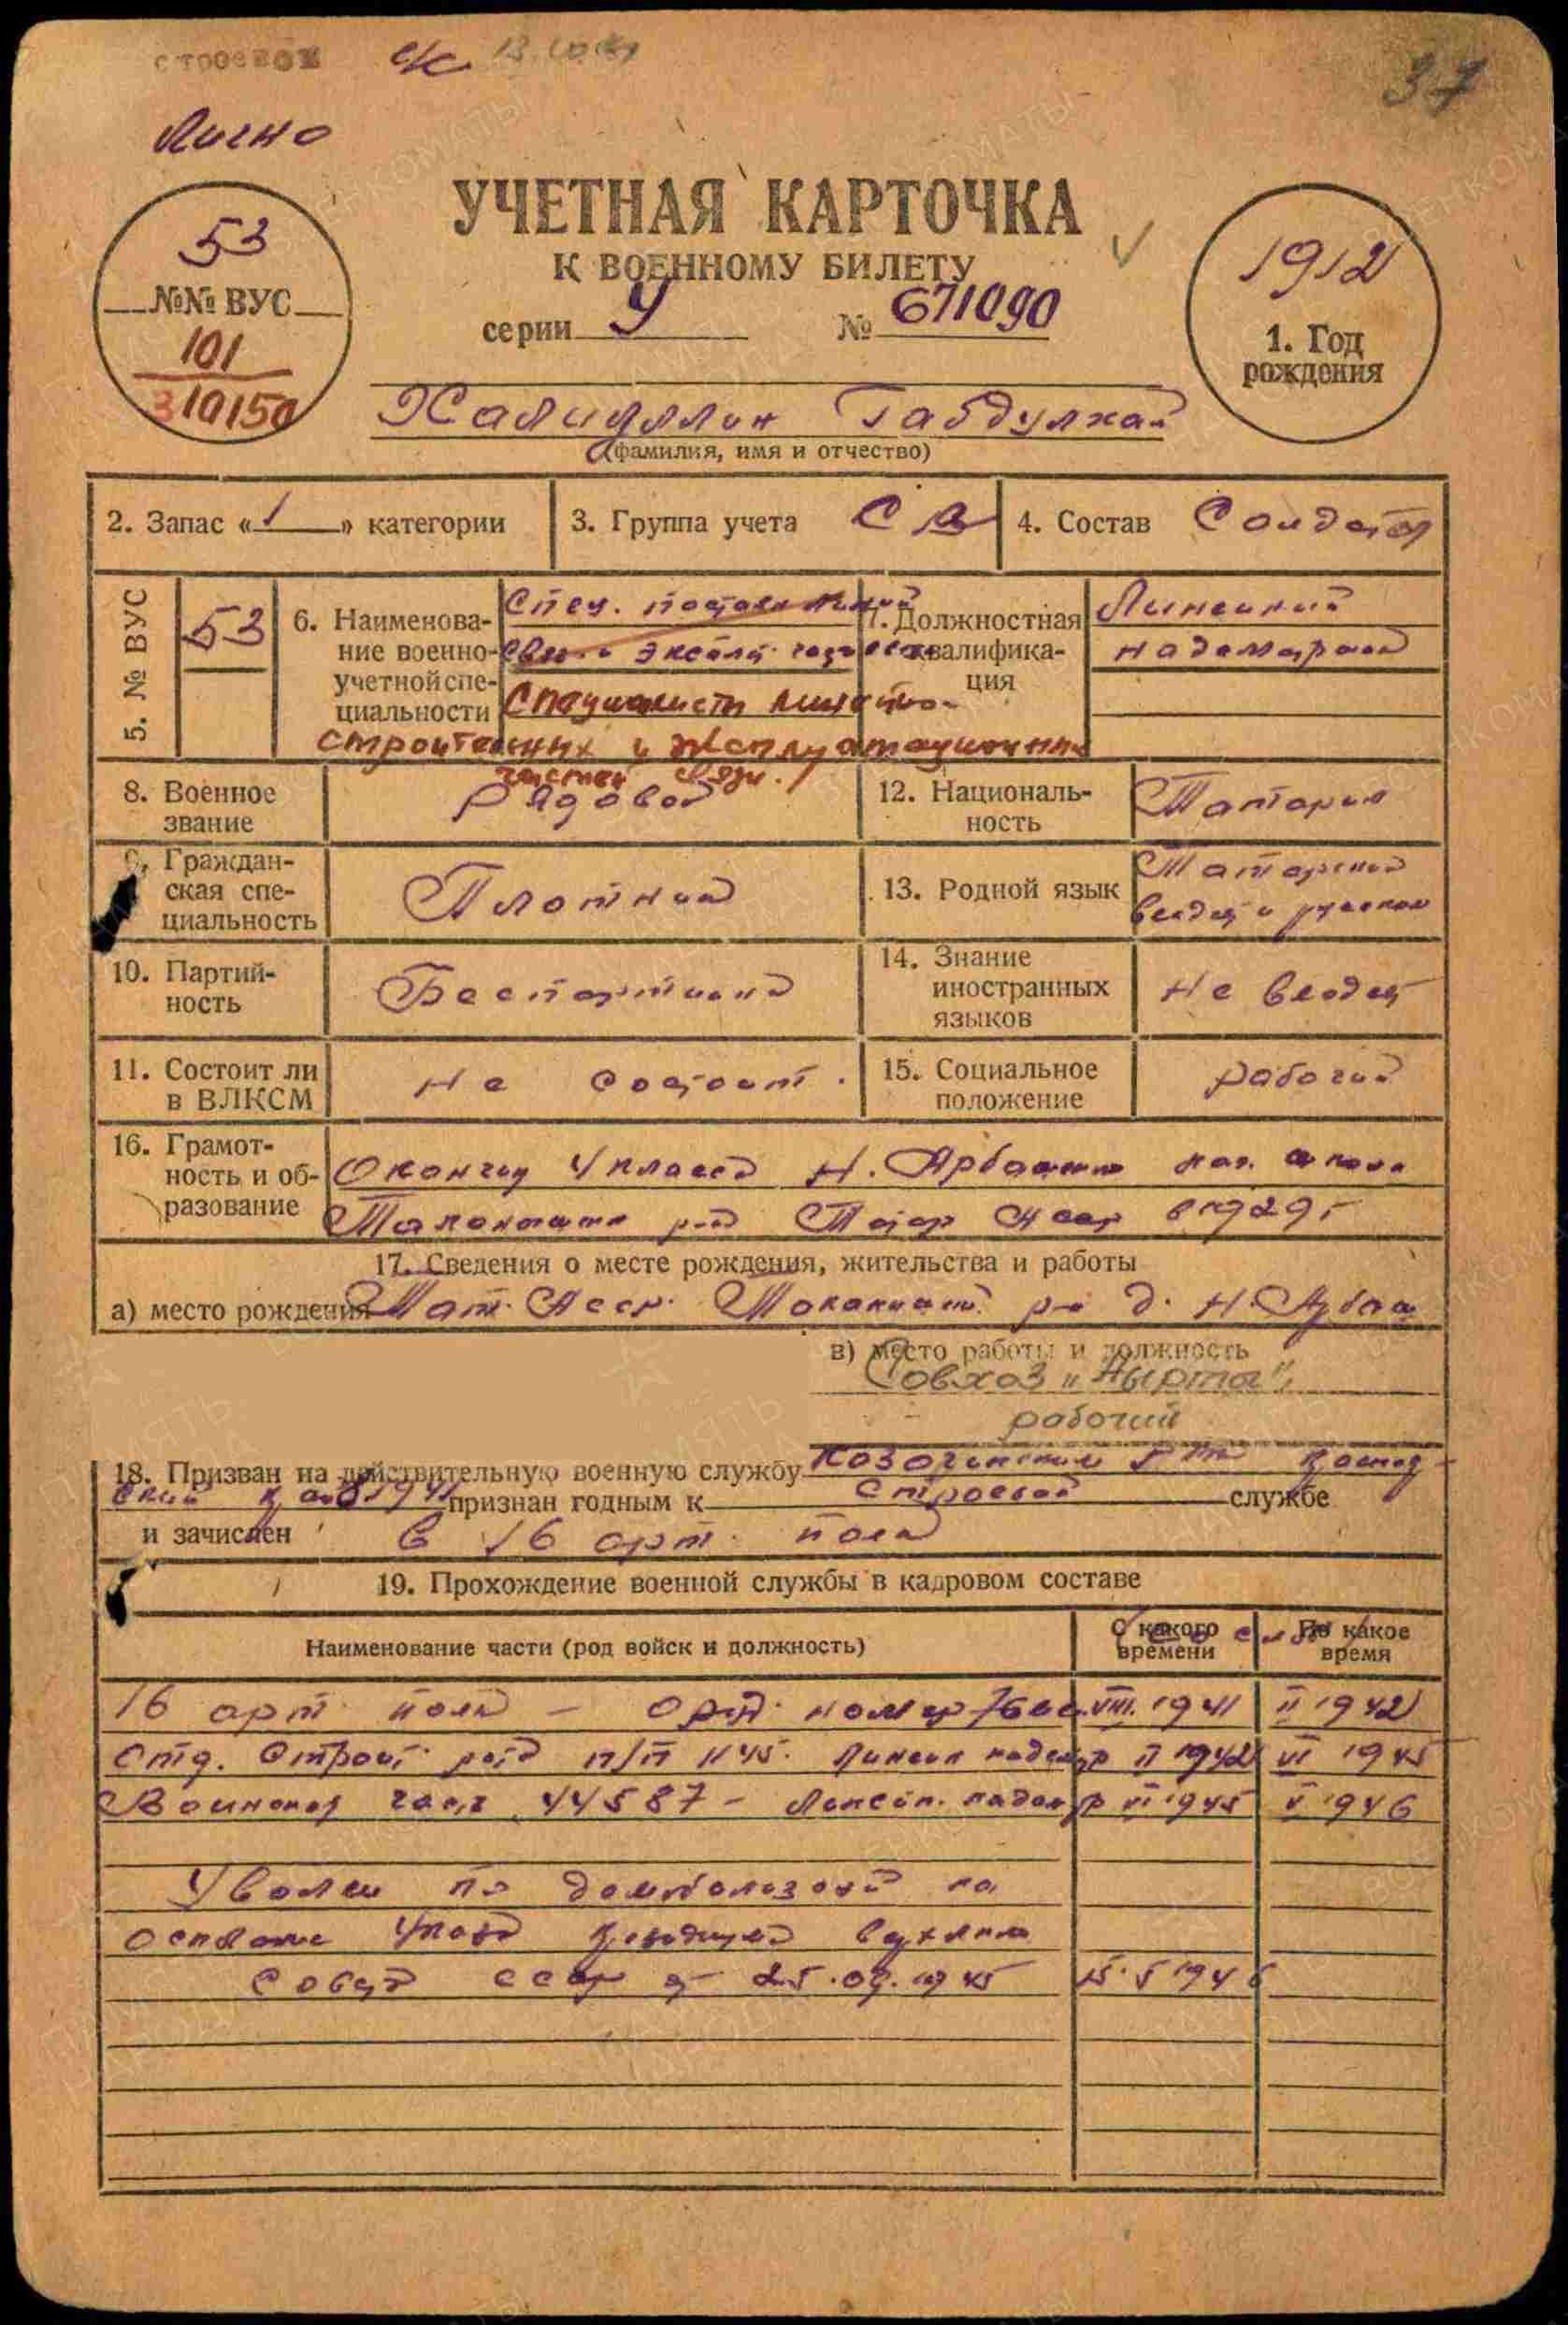 строевой
Лично
37
53
№№ ВУС
101
310150
УЧЕТНАЯ КАРТОЧКА
К ВОЕННОМУ БИЛЕТУ
серии У № 671090
1912
1. Год
рождения
Халиуллин Габдулхай
(фамилия, имя и отчество)
2. Запас «1» категории
3. Группа учета СА
4. Состав Солдат
5. № ВУС
53
6. Наименова-
ние военно-
учетной спе-
циальности
Спец.
Специалисты линейно-
строительных и эксплуатационных
частей связи.
7. Должностная
квалифика-
ция
Линейный
надсмотрщик
8. Военное
звание
Рядовой
12. Националь-
ность
Татарин
9. Граждан-
ская спе-
циальность
Плотник
13. Родной язык
Татарский
владеет и русским
10. Партий-
ность
Беспартийный
14. Знание
иностранных
языков
Не владеет
11. Состоит ли
в ВЛКСМ
Не состоит.
15. Социальное
положение
рабочий
16. Грамот-
ность и об-
разование
Окончил 4 класса Н. Арбашин нач. школа
р-на Татар АССР в 1929 г
17. Сведения о месте рождения, жительства и работы
а) место рождения Тат. АССР. р-н д. Н.
в) место работы и должность
Совхоз „Нырты",
рабочий
18. Призван на действительную военную службу
1941 признан годным к строевой службе
и зачислен в 16 арт. полк
19. Прохождение военной службы в кадровом составе
Наименование части (род войск и должность)
С какого
времени
По какое
время
16 арт. полк – номер VIII. 1941 II 1942
Отд. Строит. рота п/п 1145. Линейн. надсмотр II 1942 VI 1945
Воинская часть 44587 – Линейн. надсмотр VI 1945 V 1946
Уволен по демобилизации на
основании Указа Президиума Верховного
Совета СССР от 25.09.1945 15.5 1946